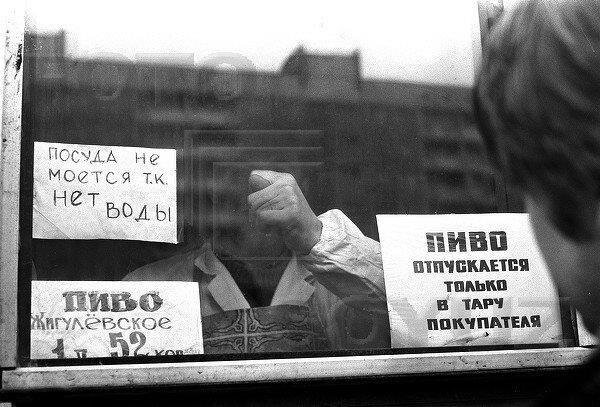 ПОСУДА НЕ
МОЕТСЯ Т.К.
НЕТ ВОДЫ
ПИВО
ЖИГУЛЁВСКОЕ
1 л 52 коп
ПИВО
ОТПУСКАЕТСЯ
ТОЛЬКО
В ТАРУ
ПОКУПАТЕЛЯ
ФОТО